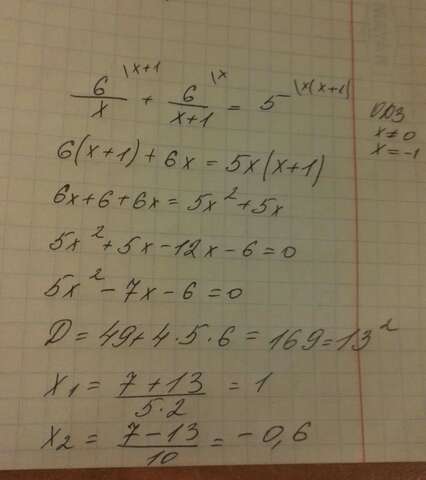 6/x \x+1 + 6/(x+1) \x = 5 \x(x+1)
ОДЗ
x≠0
x=-1
6(x+1)+6x=5x(x+1)
6x+6+6x=5x²+5x
5x²+5x-12x-6=0
5x²-7x-6=0
D=49+4·5·6=169=13²
x₁=(7+13)/(5·2)=1
x₂=(7-13)/10=-0,6